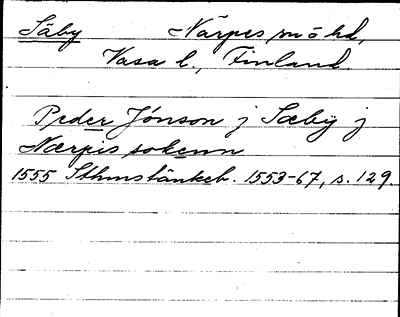 Säby Närpes sn o hd,
Vasa l., Finland
Peder Jønson j Sæby j
Nærpis sokenn
1555 Sthmstänkeb. 1553-67, s. 129.